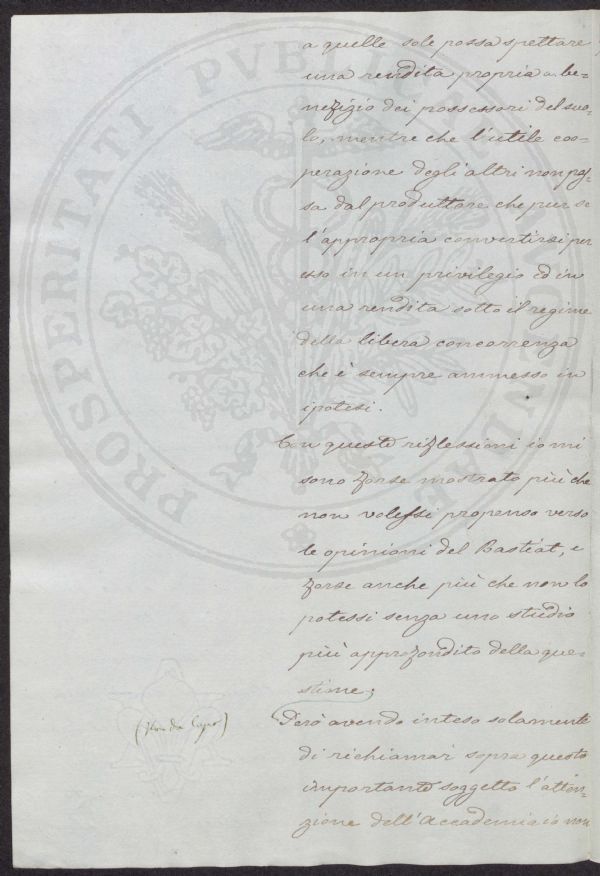 a quelle sole possa spettare
una rendita propria a be-
nefizio dei possessori del suo-
lo, mentre che l'utile coo-
perazione degli altri non pos-
sa dal produttore che pur se
l'appropria convertirsi per
esso in un privilegio ed in
una rendita sotto il regime
della libera concorrenza
che è sempre ammesso in
ipotesi.
Con queste riflessioni io mi
sono forse mostrato più che
non volessi propenso verso
le opinioni del Bastiat, e
forse anche più che non lo
potessi senza uno studio
più approfondito della que-
stione;
Però avendo inteso solamente
di richiamar sopra questo
importante soggetto l'atten-
zione dell'Accademia io non
(non da Capo)
PROSPERITATI PUBLICAE AUGENDAE